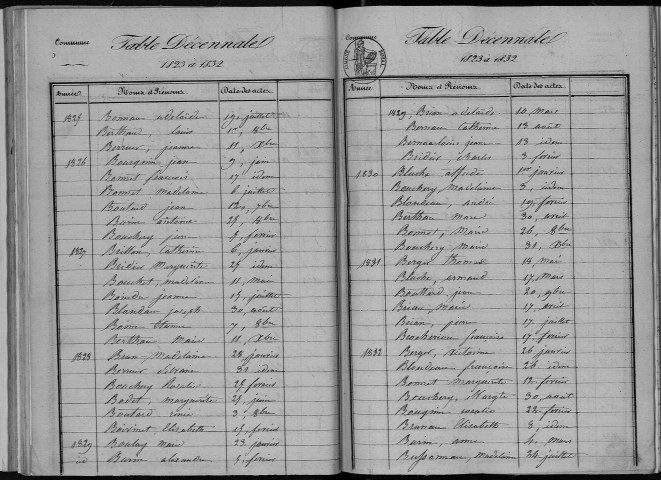 Commune
Table Décennale
1823 à 1832
Année Noms et Prénoms Date des actes
1825 Bonnau adelaïde 19, juillet
Berthau, louis 1er, 8bre
Berreur, jeanne 11, Xbre
1826 Bourgoin jean 9, juin
Bonnet francois 17 idem
Bonnet madelaine 6 juillet
Boutard jean 7bre
Burin antoine 8bre
Bouchery jean 4, fevrier
1827 Bridon, Catherine 6, janvier
Bridier Marguerite 25, idem
Bouchet, madelaine 11, Mai
Boindu jeanne 15, juillet
Blondau jacob 30, aout
Etienne 7, 8bre
Berthau Marie 11, Xbre
1828 Brun Madelaine 28, janvier
31 idem
Bouchery Rosalie 25 fevrier
Bodet, marguerite 25, juin
Boutard rené 3, 8bre
Boivinet elisabeth 15, fevrier
1829 Boulay Marie 23 janvier
id Burin alexandre 5, fevrier
Commune
Table Décennale
1823 à 1832
Année Noms et Prénoms Date des actes
1829 Brian adelaïde 10 Mars
Catherine 13 août
jeanne 13 idem
Bridier, Charles 3, fevrier
1830 Bluche alfride 1er janvier
Bouchery Madelaine 3, idem
Blondeau, andré 19, fevrier
Berthau Marie 30, avril
Bonnet, Marie 26, 8bre
Bouchery Marie 31, Xbre
1831 Borger Thomas 18 mai
Bluche, armand 17, Mars
Bouttard, jean 20, 9bre
Brian Marie 17, avril
Brian, jean 17, juillet
francoise 17, fevrier
1832 Berger, Victorine 26 janvier
Blondeau francoise 26 idem
Bonnet marguerite 12, fevrier
Bouchery, Margte 30, août
Bougoin rosalie 22, fevrier
Bruneau Elisabeth 8, idem
Burin, anne 4, mars
Bussonnau, Madelaine 24, juillet